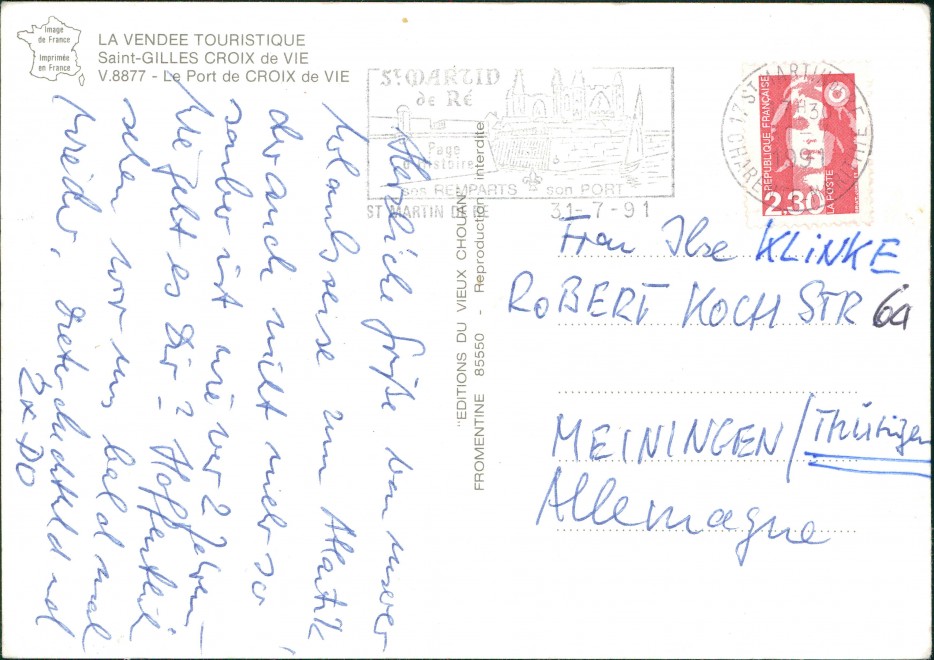 Image
de France
Imprimée
en France
LA VENDEE TOURISTIQUE
Saint-GILLES CROIX de VIE
V.8877 - Le Port de CROIX de VIE
St MARTIN
de Ré
Page
d'histoire
ses REMPARTS son PORT
ST MARTIN DE RE 31-7-91
17 ST MARTIN DE RE
CHARENTE MARITIME
RÉPUBLIQUE FRANÇAISE
2,30
LA POSTE
"EDITIONS DU VIEUX CHOUAN"
FROMENTINE 85550 - Reproduction interdite
Herzliche Grüße von unserer
Urlaubsreise zum Atlantik
der auch nicht mehr so
sauber ist wie vor 2 Jahren -
Wie geht es Dir? Hoffentlich
sehen wir uns bald mal
wieder,
Frau Ilse KLiNKE
RoBERT KOCH STR 6a
MEININGEN/Thüringen
Allemagne